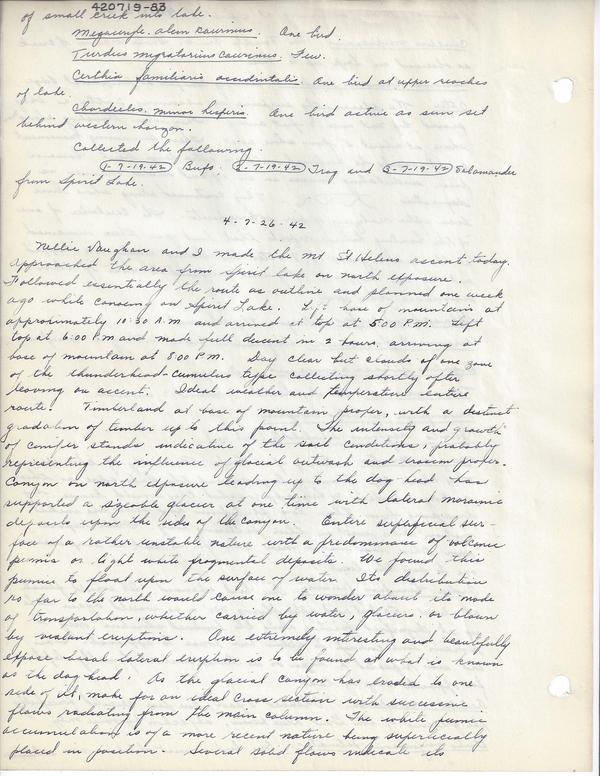 420719-83
of small creek into lake.
Megaceryle. alcion caurinus. One bird.
Turdus migratorius caurinus. Few.
Certhia familiaris occidentalis. One bird at upper reaches
of lake.
Chordeiles. minor hesperis. One bird active as sun set
behind western horizon.
Collected the following.
1-7-19-42 Bufo; 2-7-19-42 Frog and 3-7-19-42 Salamander
from Spirit Lake.
4-7-26-42
Nellie Vaughan and I made the Mt St Helens ascent today.
Approached the area from Spirit Lake on north exposure.
Followed essentially the route as outline and planned one week
ago while canoeing on Spirit Lake. Left base of mountain at
approximately 10:30 A.M. and arrived at top at 5:00 P.M. Left
top at 6:00 P.M and made full descent in 2 hours, arriving at
base of mountain at 8:00 P.M. Day clear but clouds of one zone
of the thunderhead-cumulus type collecting shortly after
leaving on ascent. Ideal weather and temperature entire
route. Timberland at base of mountain proper, with a distinct
gradation of timber up to this point. The intensity and growth
of conifer stands indicative of the soil conditions, probably
representing the influence of glacial outwash and erosion proper.
Canyon on north exposure leading up to the dog-head has
supported a sizeable glacier at one time with lateral morainic
deposits upon the sides of the canyon. Entire superficial sur-
face of a rather unstable nature with a predominance of volcanic
pumis or light white fragmental deposits. We found this
pumice to float upon the surface of water. Its distribution
so far to the north would cause one to wonder about its mode
of transportation, whether carried by water, glaciers, or blown
by violent eruptions. One extremely interesting and beautifully
expose basal lateral eruption is to be found at what is known
as the dog head. As the glacial canyon has eroded to one
side of it, make for an ideal cross section with successive
flows radiating from the main column. The white pumic
accumulation is of a more recent nature being superficially
placed in position. Several solid flows indicate its